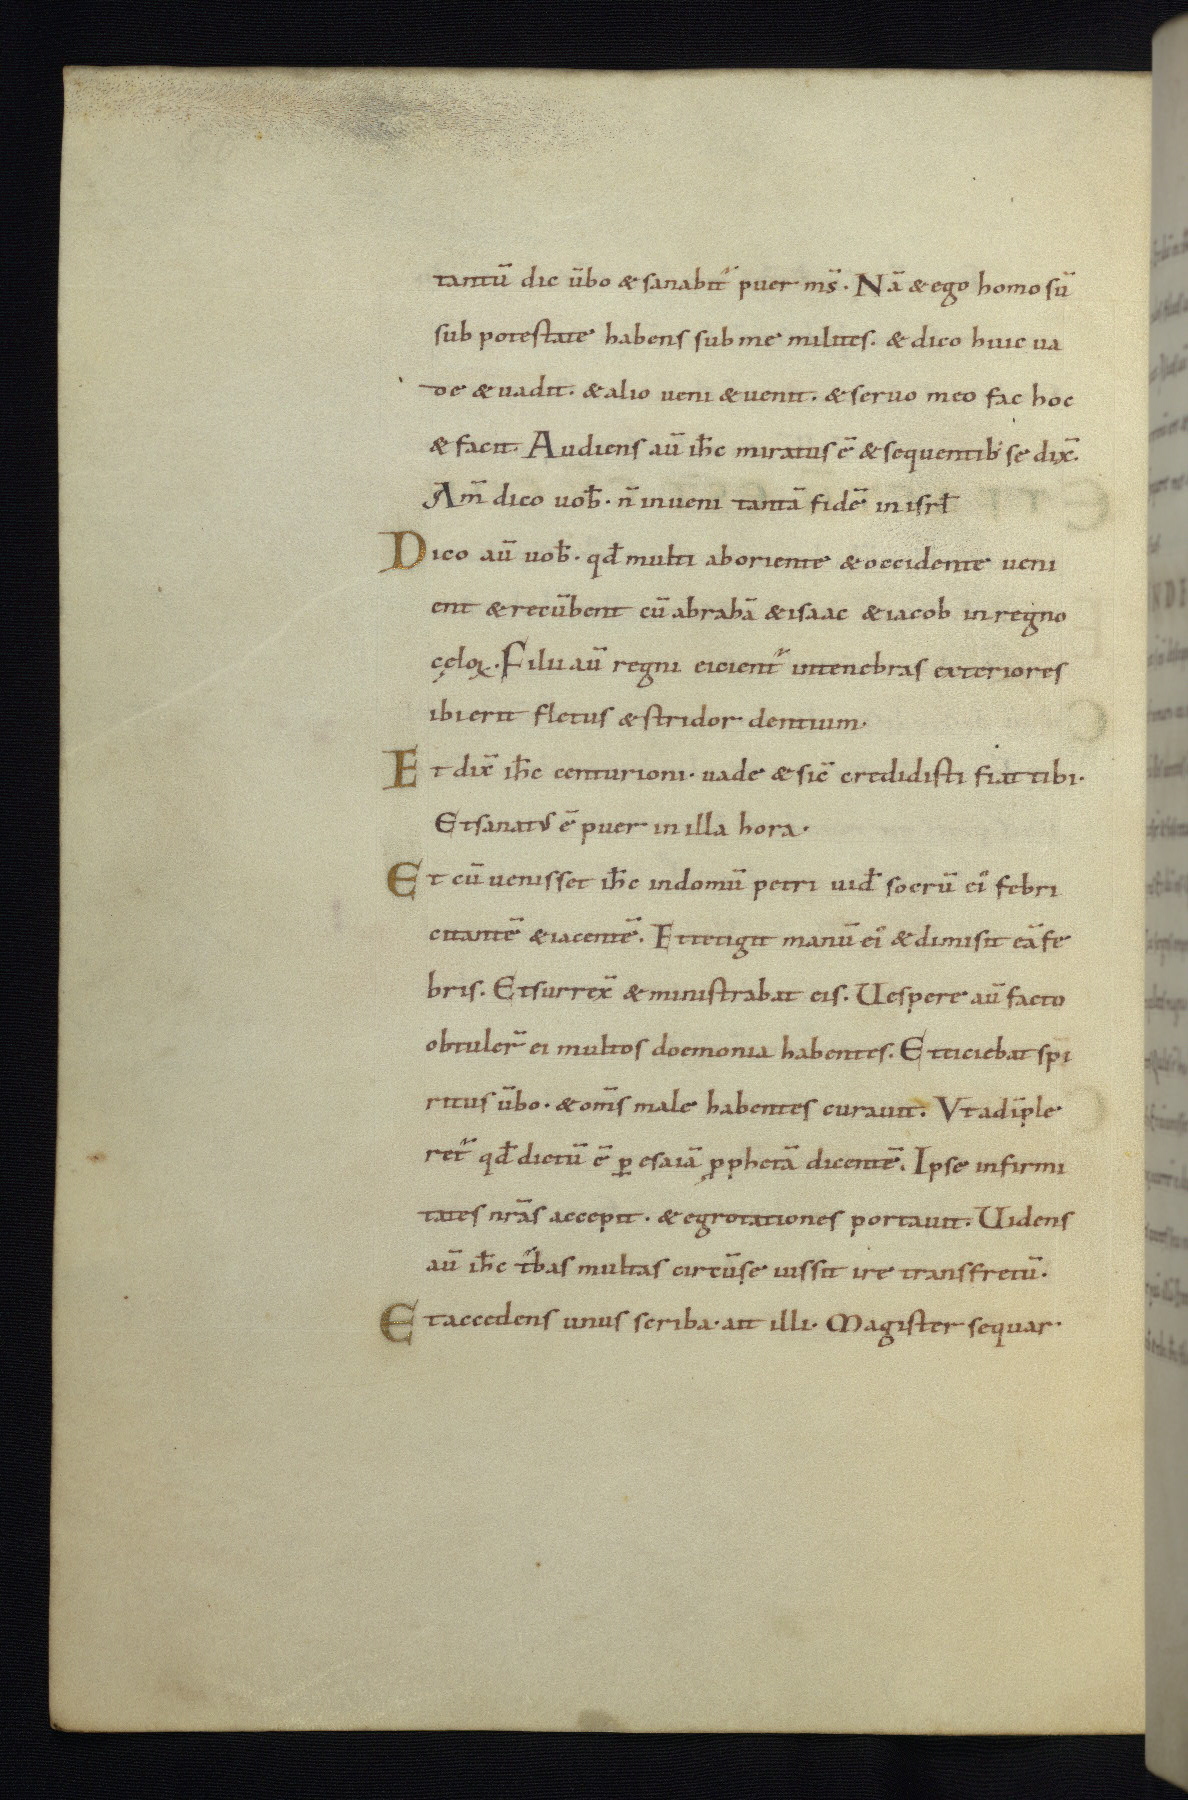 tantū dic ūbo & sanabit᷑ puer ms̄. Nā & ego homo sū
sub potestate habens sub me milites. & dico huic ua
de & uadit. & alio ueni & uenit. & seruo meo fac hoc
& facit. Audiens aū ih̄c miratus ē & sequentib' se dix̄.
Am̄ dico uob̄. n̄ inueni tantā fidē in isrł
Dico aū uob̄. qđ multi ab oriente & occidente ueni
ent & recūbent cū abrahā & isaac & iacob in regno
cęloꝝ. Filii aū regni eicient᷑ in tenebras exteriores
ibi erit fletus & stridor dentium.
Et dix̄ ih̄c centurioni. uade & sic̄ credidisti fiat tibi.
Et sanatus ē puer in illa hora.
Et cū uenisset ih̄c in domū petri uid̄ socrū ei᷒ febri
citantē & iacentē. Et tetigit manū ei᷒ & dimisit eā fe
bris. Et surrex̄ & ministrabat eis. Uespere aū facto
obtuler̄ ei multos doemonia habentes. Et eiciebat spi
ritus ūbo. & om̄s male habentes curauit. Vt adīple
ret᷑ qđ dictū ē ꝑ esaiā ꝓphetā dicentē. Ipse infirmi
tates nr̄as accepit. & egrotationes portauit. Uidens
aū ih̄c t᷑bas multas circū se iussit ire trans fretū.
Et accedens unus scriba. ait illi. Magister sequar